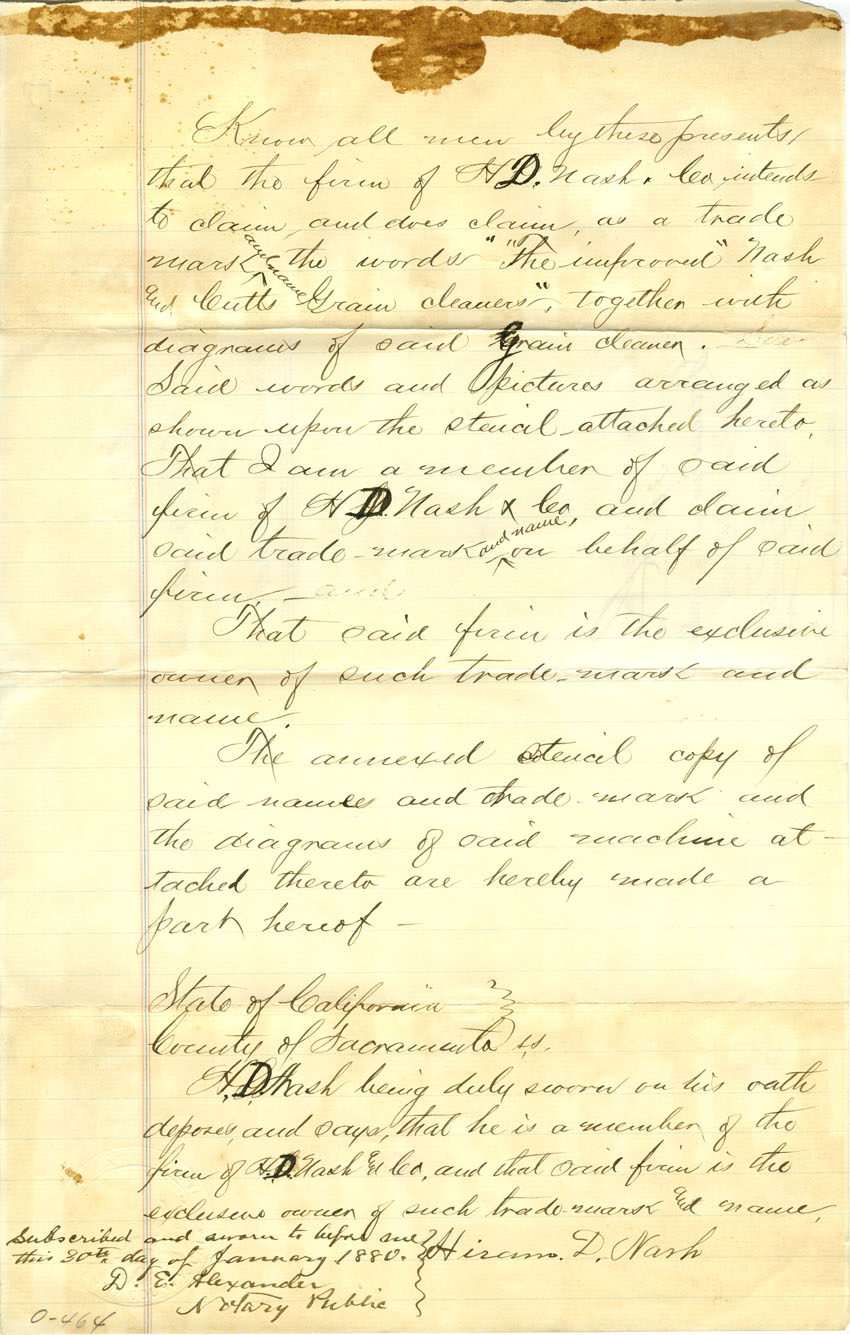 Know all men by these presents,
that the firm of H D. Nash & Co, intends
to claim, and does claim, as a trade
mark and name the words "The improved" Nash
and Cutts Grain cleaners", together with
diagrams of said Grain cleaner.
Said words and pictures arranged as
shown upon the stencil attached hereto,
That I am a member of said
firm of H D. Nash & Co, and claim
said trade-mark and name, on behalf of said
firm, and
That said firm is the exclusive
owner of such trade-mark and
name.
The annexed stencil copy of
said names and trade-mark and
the diagrams of said machine at-
tached thereto are hereby made a
part hereof -
State of California
County of Sacramento ss.
H. D. Nash being duly sworn on his oath
deposes, and says, that he is a member of the
firm of H. D. Nash & Co, and that said firm is the
exclusive owner of such trade-mark and name,
Hiram. D. Nash
Subscribed and sworn to before me
this 30th day of January 1880.
D. E. Alexander
Notary Public
O-464